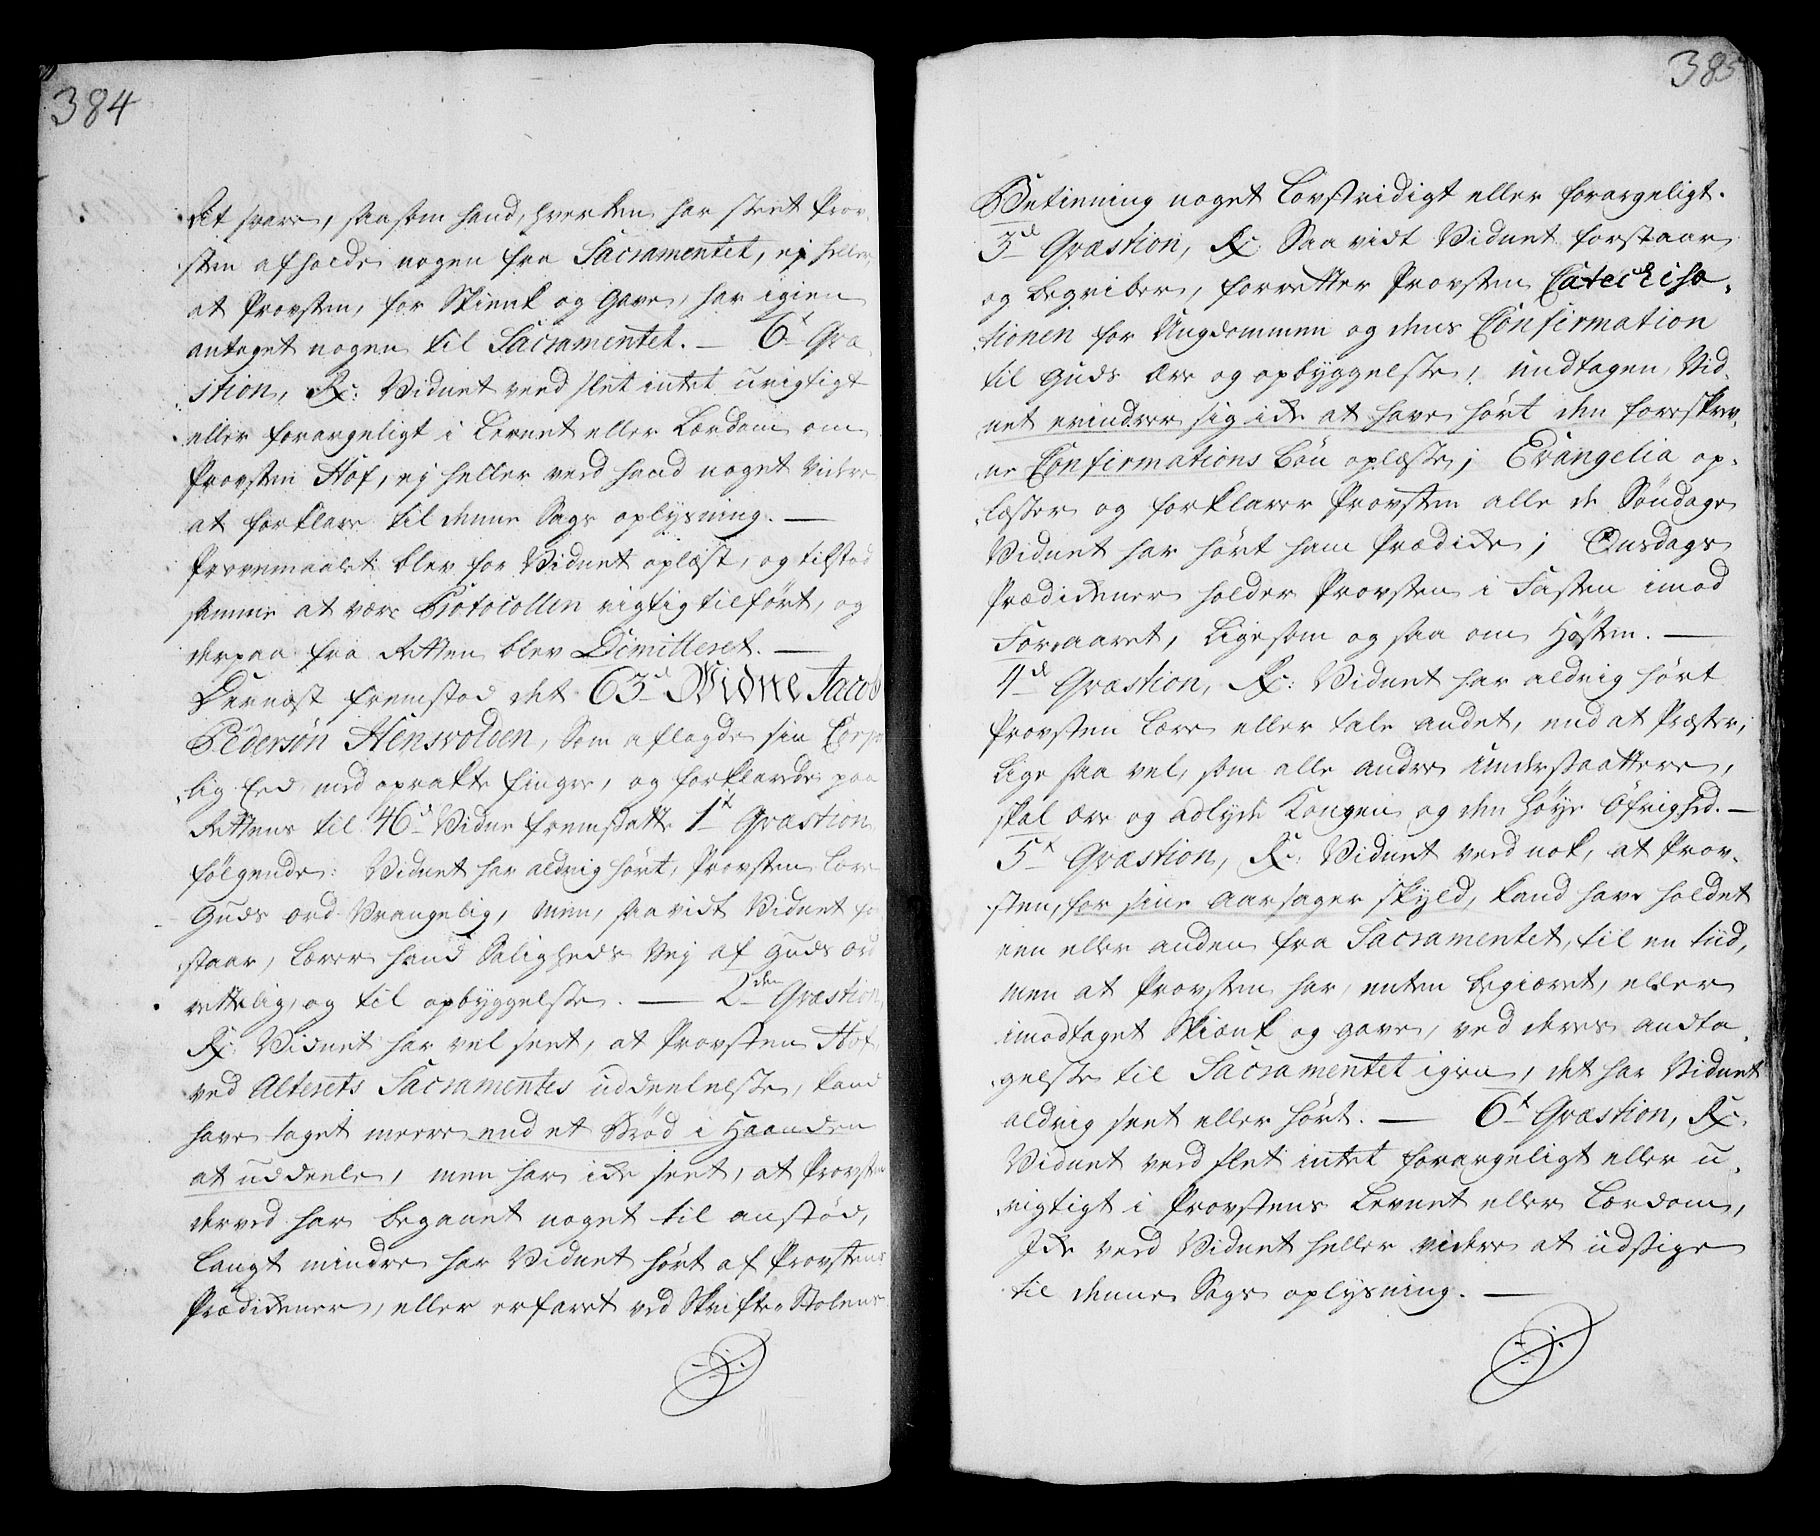 384
det svare, saasom hand, hverken har seet Prov-
sten afholde nogen fra Sacramentet, ej heller,
at Provsten, for Skienk og Gave, har igien
antaget nogen til Sacramentet. — 6t Qvæ-
stion, Rx: Vidnet veed slet intet urigtigt
eller forargeligt i Levnet eller Lærdom om
Provsten Hof, ej heller veed hand noget videre
at forklare til denne Sags oplysning. —
Provemaalet blev for Vidnet oplæst, og tilstod
samme at være Protocollen rigtig tilført, og
derpaa fra Retten blev Dimitteret. —
Dernæst fremstod det 63d Vidne Jacob
Pedersøn Hensvolden, Som aflagde sin Corpo-
lig Eed, med oprakte finger, og forklarede paa
Rettens til 46d Vidne fremsatte 1t Qvæstion
følgende: Vidnet har aldrig hørt, Provsten lære
Guds ord Vrangelig, men, saavidt Vidnet for-
staar, lærer hand Saligheds Vej af Guds ord
rettelig, og til opbyggelse. — 2den Qvæstion,
Rx: Vidnet har vel seet, at Provsten Hof,
ved Alterets Sacramentes uddeelelse, kand
have taget meere end et Brød i Haanden
at uddeele, men har icke seet, at Provsten
derved har begaaet noget til anstød,
langt mindre har Vidnet hørt af Provstens
Prædikener, eller erfaret ved Skrifte Stolens
385
Betienning noget Lovstridigt eller forargeligt.
3d Qvæstion, Rx: Saavidt Vidnet forstaar
og begriber, forretter Provsten Catechisa-
tionen for Ungdommen og dens Confirmation
til Guds Ære og opbyggelse, undtagen Vid-
net erindrer sig icke at have hørt den foreskrev-
ne Confirmations bøn oplæse; Evangelia op-
læser og forklarer Provsten alle de Søndage
Vidnet har hørt ham Prædicke; Onsdags
Prædickener holder Provsten i Fasten imod
Foraaret, ligesom og saa om Høsten. —
4d Qvæstion, Rx: Vidnet har aldrig hørt
Provsten lære eller tale andet, end at Præster,
lige saa vel, som alle andre Undersaattere,
skal ære og adlyde Kongen og den høye Øfrighed. —
5t Qvæstion, Rx: Vidnet veed nok, at Prov-
sten, for sine Aarsager skyld, kand have holdet
een eller anden fra Sacramentet, til en tiid,
men at Provsten har, enten begiæret, eller
imodtaget Skiænk og gave, ved deres andta-
gelse til Sacramentet igien, det har Vidnet
aldrig seet eller hørt. — 6t Qvæstion, Rx:
Vidnet veed slet intet forargeligt eller u-
rigtigt i Provstens Levnet eller Lærdom,
Icke veed Vidnet heller videre at udsige
til denne Sags oplysning. —